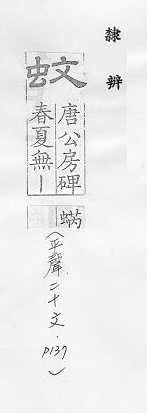 隸辨
蚊
唐公房碑
春夏無｜
蜹
(平聲.二十文.p137)